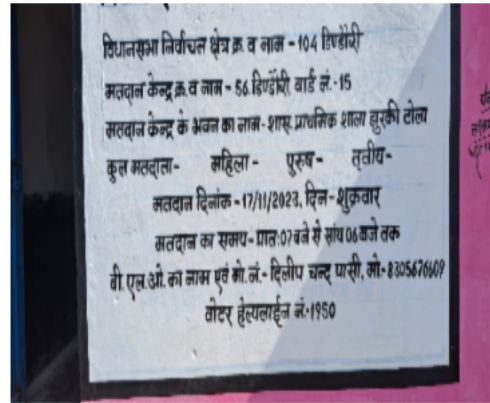 विधानसभा निर्वाचन क्षेत्र क्र. व नाम - 104 डिण्डौरी
मतदान केन्द्र क्र. व नाम - 56 डिण्डौरी वार्ड नं.-15
मतदान केन्द्र के भवन का नाम- शास. प्राथमिक शाला झुरकी टोला
कुल मतदाता- महिला- पुरुष- तृतीय-
मतदान दिनांक - 17/11/2023, दिन - शुक्रवार
मतदान का समय - प्रात: 07 बजे से सांय 06 बजे तक
वी. एल. ओ. का नाम एवं मो. नं.- दिलीप चन्द पासी, मो.- 8305676609
वोटर हेल्पलाईन नं.-1950